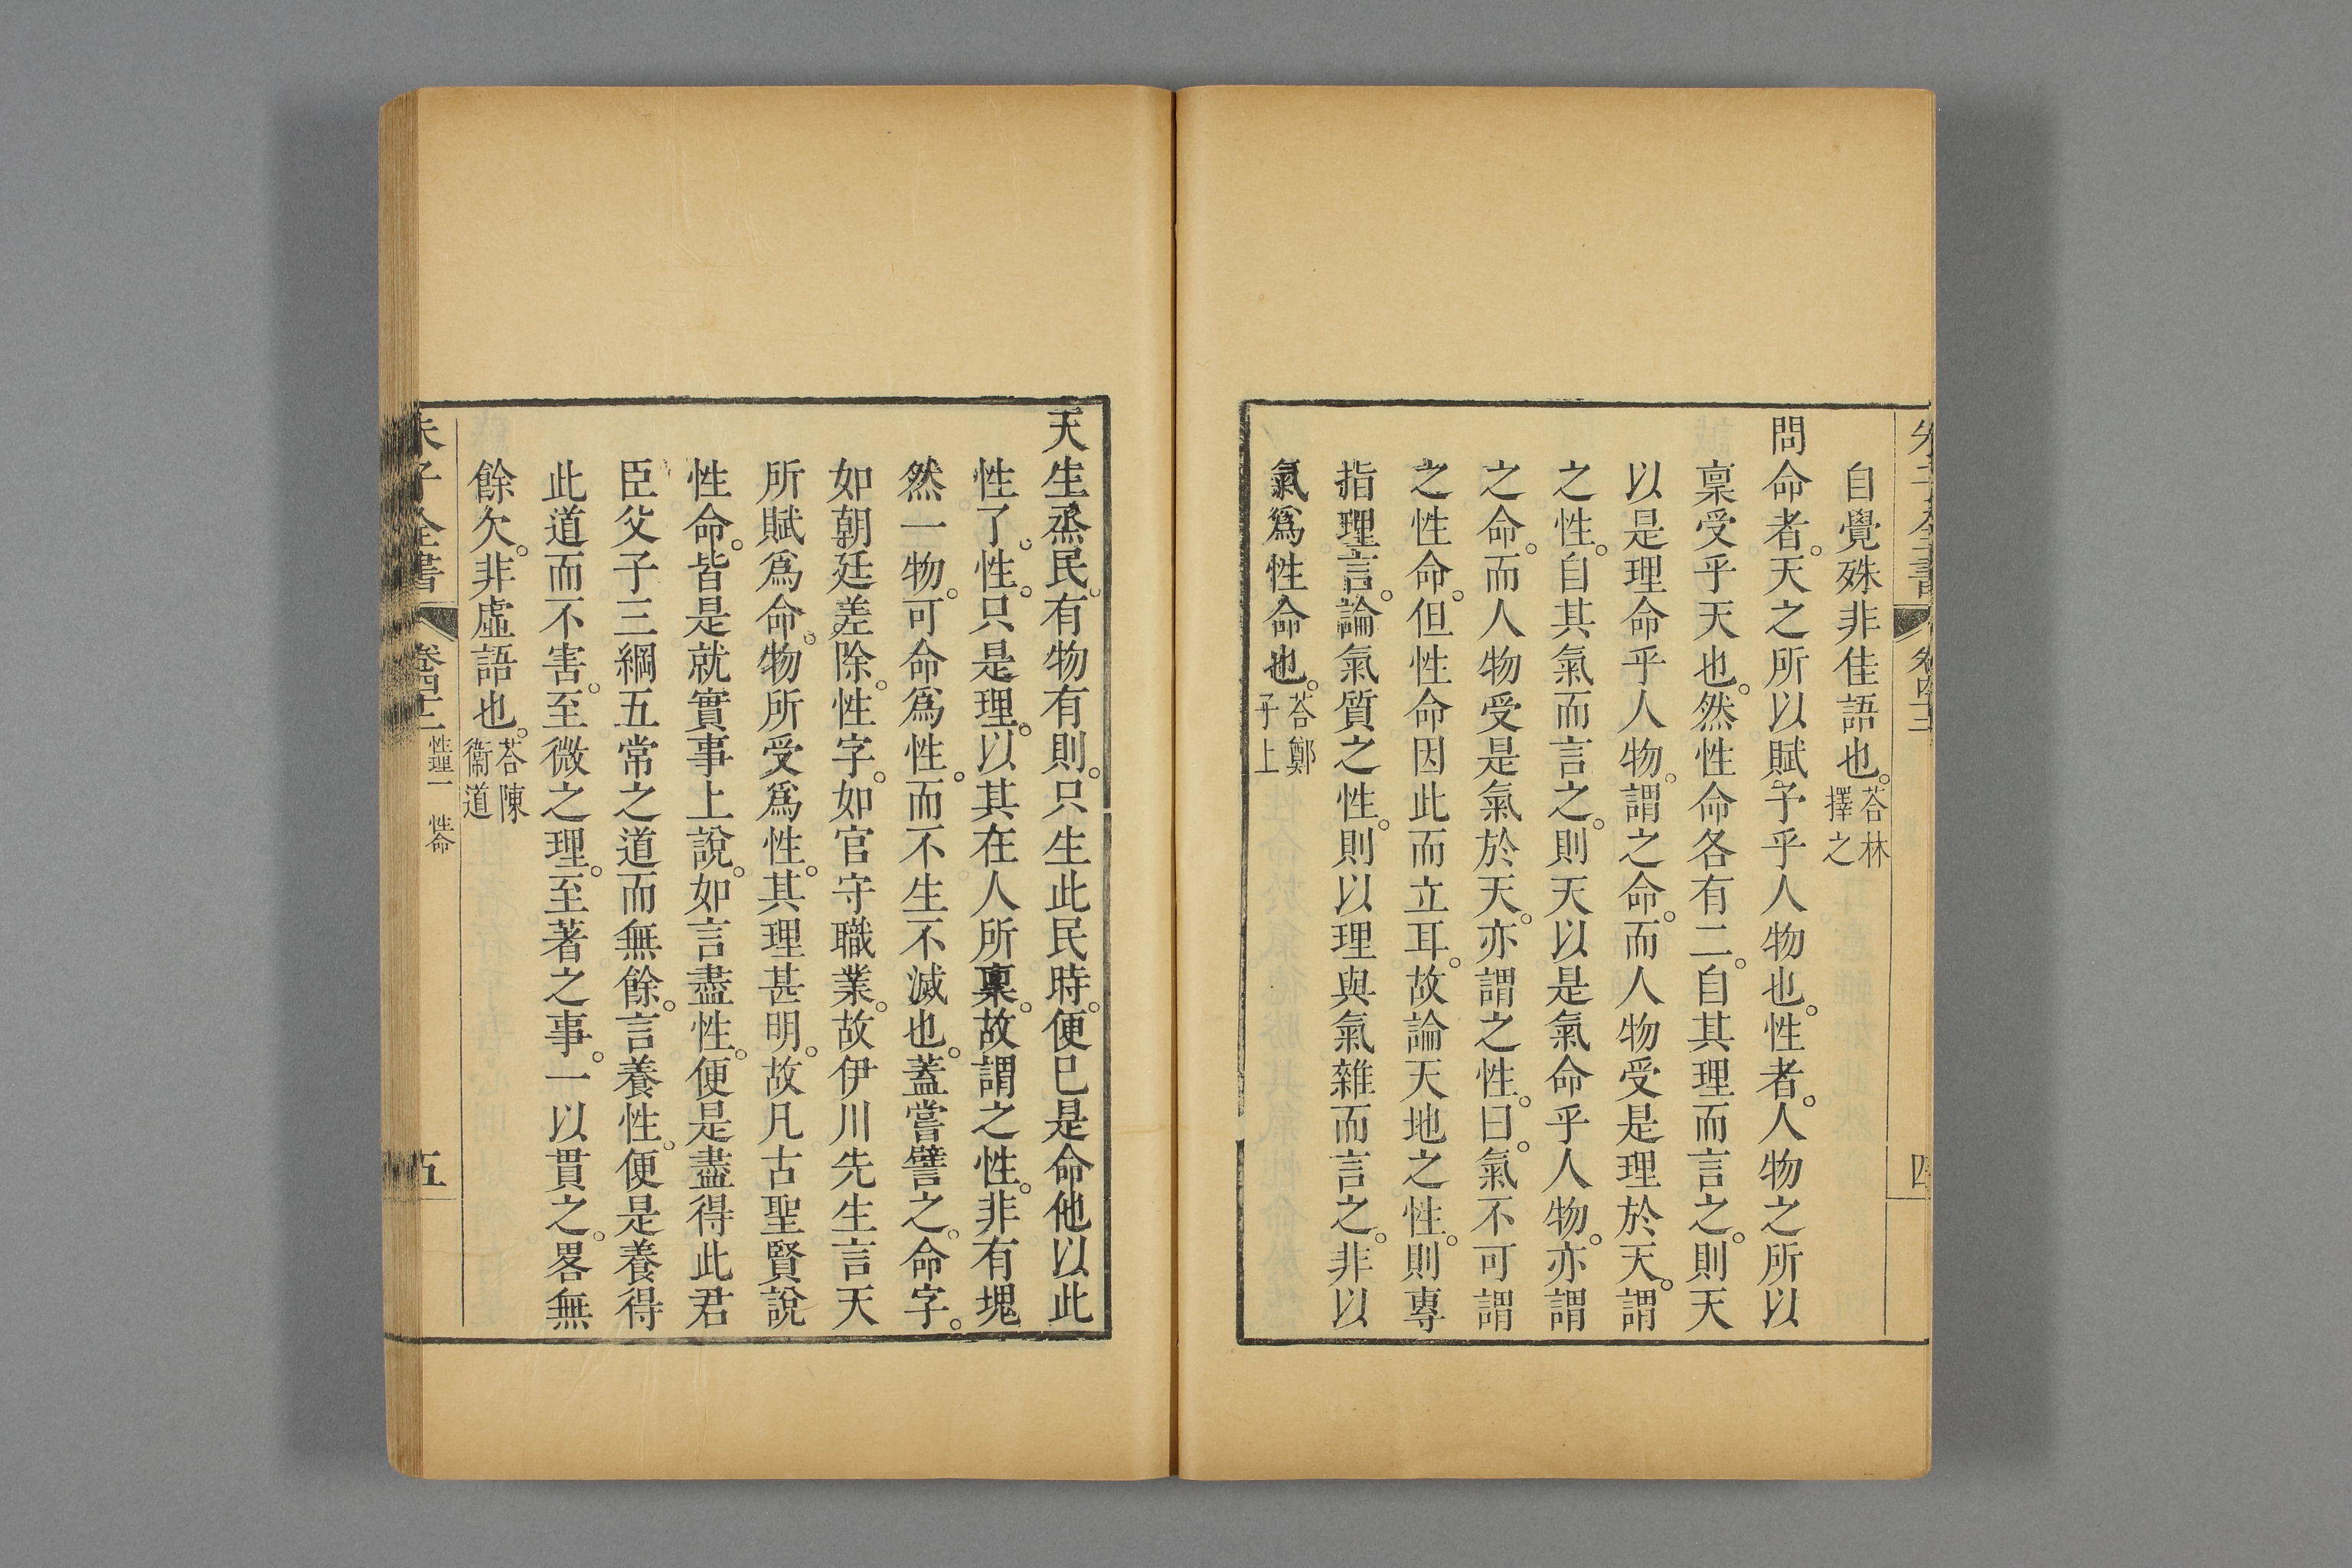 自覺殊非佳語也。荅林擇之
問命者。天之所以賦予乎人物也。性者。人物之所以
稟受乎天也。然性命各有二。自其理而言之。則天
以是理命乎人物。謂之命。而人物受是理於天。謂
之性。自其氣而言之。則天以是氣命乎人物。亦謂
之命。而人物受是氣於天。亦謂之性。曰。氣不可謂
之性命。但性命因此而立耳。故論天地之性。則專
指理言。論氣質之性。則以理與氣雜而言之。非以
氣爲性命也。荅鄭子上
天生烝民。有物有則。只生此民時。便已是命他以此
性了。性。只是理。以其在人所稟。故謂之性。非有塊
然一物。可命爲性。而不生不滅也。蓋嘗譬之。命字。
如朝廷差除。性字。如官守職業。故伊川先生言天
所賦爲命。物所受爲性。其理甚明。故凡古聖賢說
性命。皆是就實事上說。如言盡性。便是盡得此君
臣父子三綱五常之道而無餘。言養性。便是養得
此道而不害。至微之理。至著之事。一以貫之。畧無
餘欠。非虛語也。荅陳衞道
朱子全書 卷四十二 性理一 性命 五